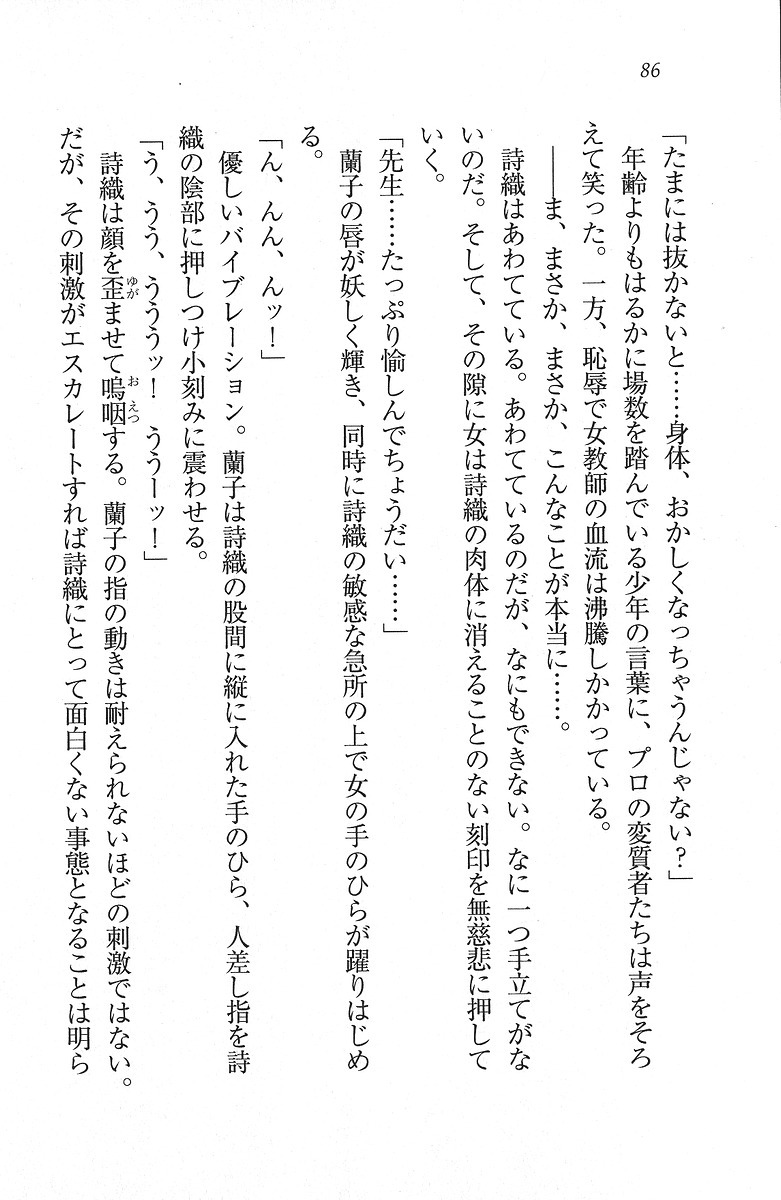 86
「たまには抜かないと……身体、おかしくなっちゃうんじゃない？」
年齢よりもはるかに場数を踏んでいる少年の言葉に、プロの変質者たちは声をそろ
えて笑った。一方、恥辱で女教師の血流は沸騰しかかっている。
――ま、まさか、まさか、こんなことが本当に……。
詩織はあわてている。あわてているのだが、なにもできない。なに一つ手立てがな
いのだ。そして、その隙に女は詩織の肉体に消えることのない刻印を無慈悲に押して
いく。
「先生……たっぷり愉しんでちょうだい……」
蘭子の唇が妖しく輝き、同時に詩織の敏感な急所の上で女の手のひらが躍りはじめ
る。
「ん、んん、んッ！」
優しいバイブレーション。蘭子は詩織の股間に縦に入れた手のひら、人差し指を詩
織の陰部に押しつけ小刻みに震わせる。
「う、うう、うううッ！　ううーッ！」
詩織は顔を歪ゆがませて嗚咽おえつする。蘭子の指の動きは耐えられないほどの刺激ではない。
だが、その刺激がエスカレートすれば詩織にとって面白くない事態となることは明ら